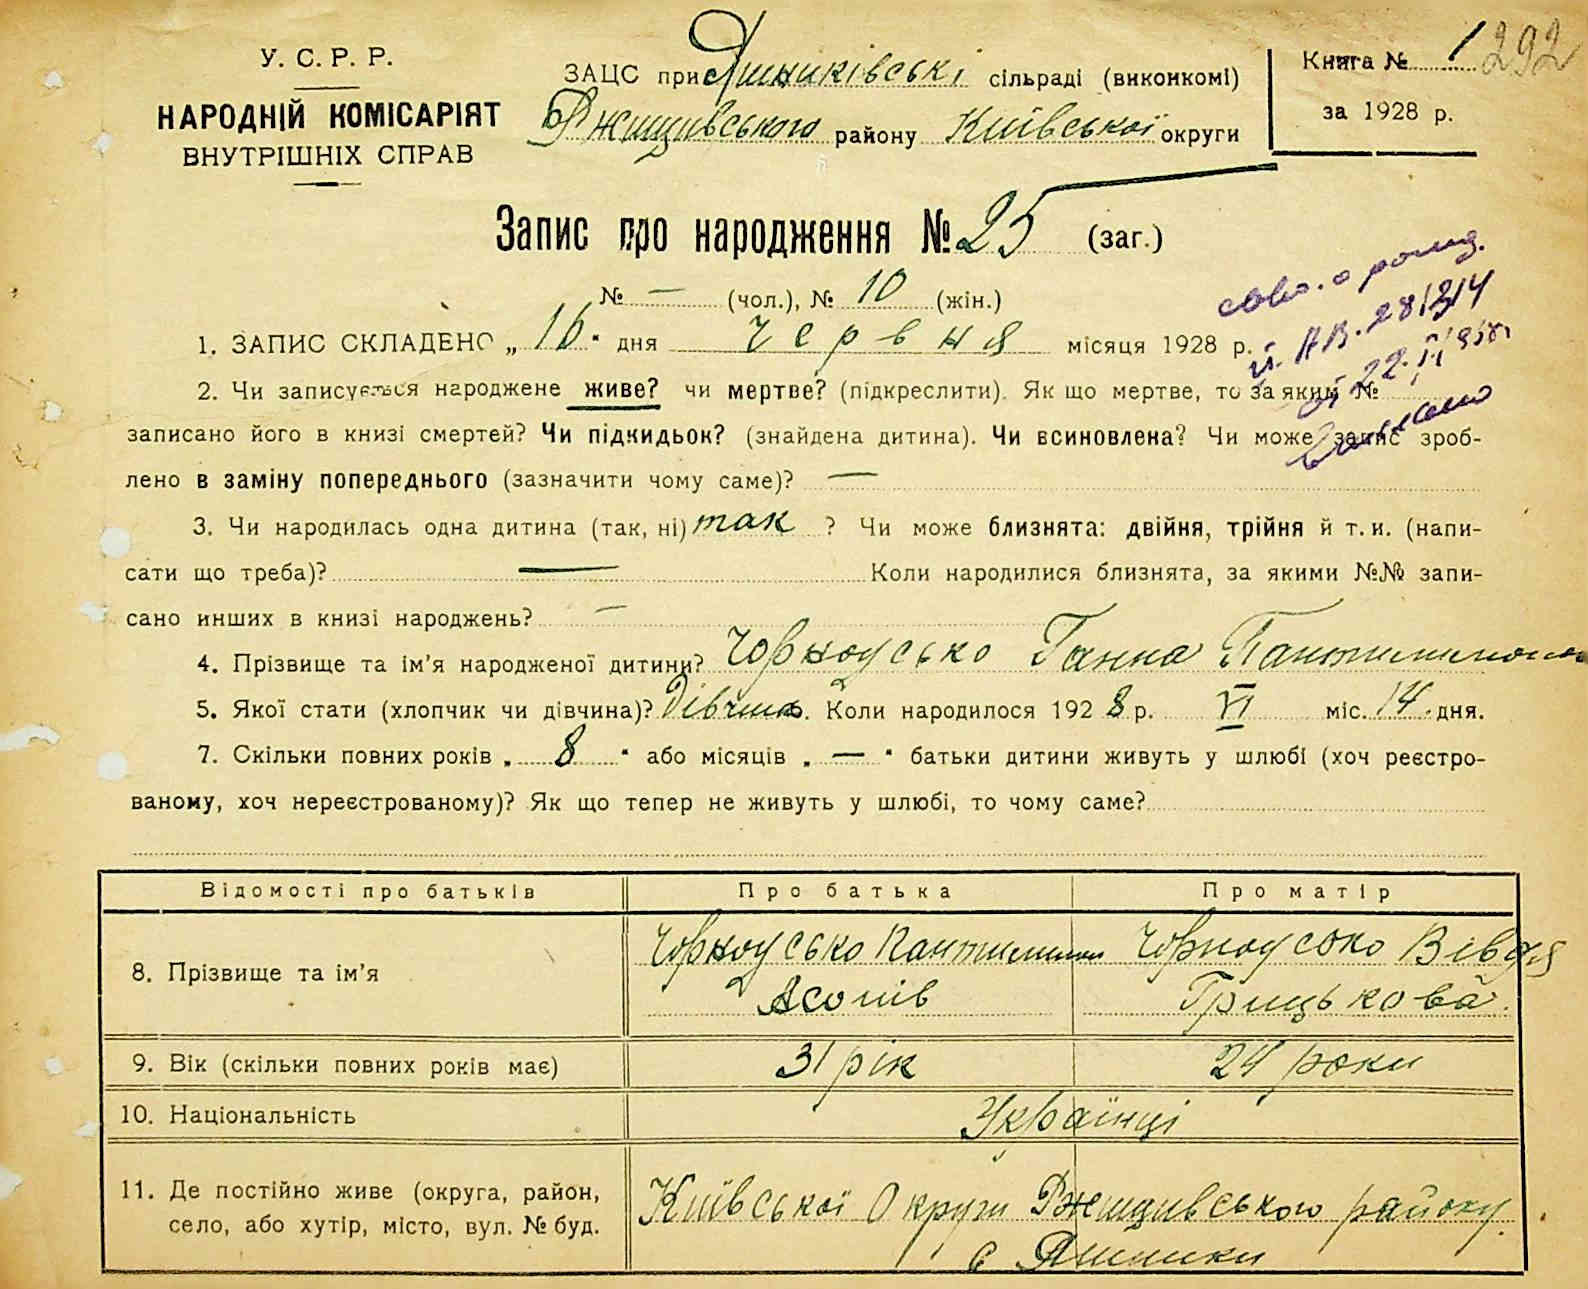 У. С. Р. Р.
НАРОДНІЙ КОМІСАРІЯТ
ВНУТРІШНІХ СПРАВ
ЗАЦС при Яшниківські сільраді (виконкомі)
Ржищівського району Київської округи
Книга № 1 292
за 1928 р.
Запис про народження № 25 (заг.)
№ — (чол.), № 10 (жін.)
1. ЗАПИС СКЛАДЕНО „ 16 “ дня червня місяця 1928 р.
2. Чи записується народжене живе? чи мертве? (підкреслити). Як що мертве, то за яким №
записано його в книзі смертей? Чи підкидьок? (знайдена дитина). Чи всиновлена? Чи може запис зроб-
лено в заміну попереднього (зазначити чому саме)? —
3. Чи народилась одна дитина (так, ні) так ? Чи може близнята: двійня, трійня й т. и. (напи-
сати що треба)? — Коли народилися близнята, за якими №№ запи-
сано инших в книзі народжень? —
4. Прізвище та ім'я народженої дитини? Чорноусько Ганна
5. Якої стати (хлопчик чи дівчина)? Дівчина. Коли народилося 1928 р. VI міс. 14 дня.
7. Скільки повних років „ 8 “ або місяців „ — “ батьки дитини живуть у шлюбі (хоч реєстро-
ваному, хоч нереєстрованому)? Як що тепер не живуть у шлюбі, то чому саме?
Відомості про батьків Про батька Про матір
8. Прізвище та ім'я Чорноусько Чорноусько Вівдя
Грицькова
9. Вік (скільки повних років має) 31 рік 24 роки
10. Національність Українці
11. Де постійно живе (округа, район, село, або хутір, місто, вул. № буд. Київської Округи Ржищівського району
с Яшники